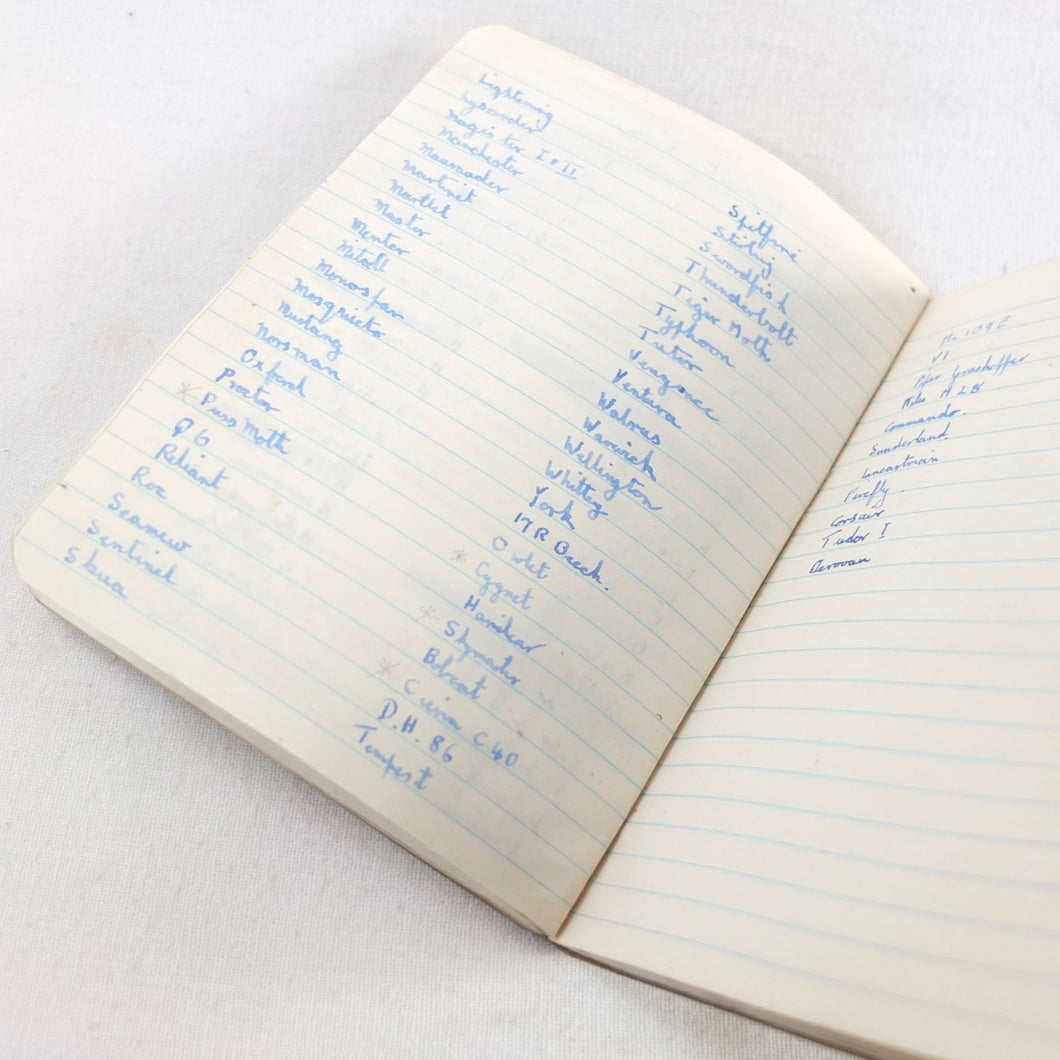 Lightening
Lysander
Magister I & II
Manchester
Mauraader
Martinet
Martlet
Master
Menter
Mitsll
Monospan
Mosquieto
Mustang
Norsman
Oxford
Proctor
* Puss Moth
Q 6
Reliant
Roc
Seamew
Sentinel
Skua
Spitfire
Stirling
Swordfish
Thunderbolt
Tiger Moth
Typhoon
Tutor
Vengence
Ventura
Walrus
Warwick
Wellington
Whitley
York
17 R Beech.
Owlet
* Cygnet
Hamilcar
* Skymaster
Bobcat
* Curia C 40
D.H. 86
Tempest
Me 109E
V1
Piper Grasshopper
Miles M 28
Commando.
Sunderland.
Lancastrian
Firefly.
Corsair
Tudor I
Aerovan